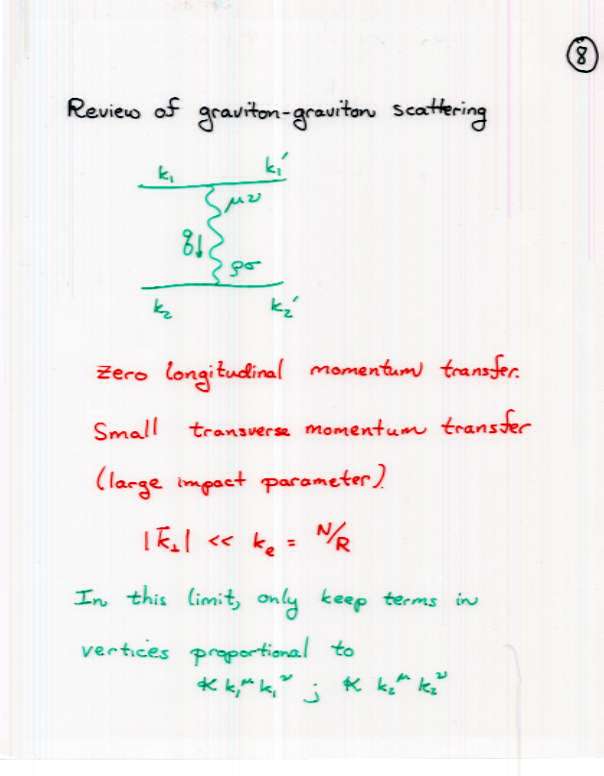 8
Review of graviton-graviton scattering
k₁ k₁′
μν
q↓
ρσ
k₂ k₂′
Zero longitudinal momentum transfer.
Small transverse momentum transfer
(large impact parameter).
|k̄⊥| << kₑ = N/R
In this limit, only keep terms in
vertices proportional to
κ k₁^μ k₁^ν ; κ k₂^μ k₂^ν